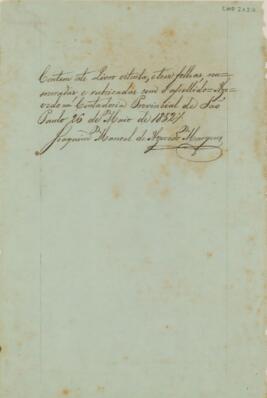 Contem este Livro oitenta, e tres folhas, nu-
meradas e rubricadas com o apellido = Aze-
vedo = na Contadoria Provincial de São
Paulo 26 de Maio de 1852//
Joaquim Manoel de Azevedo Marques